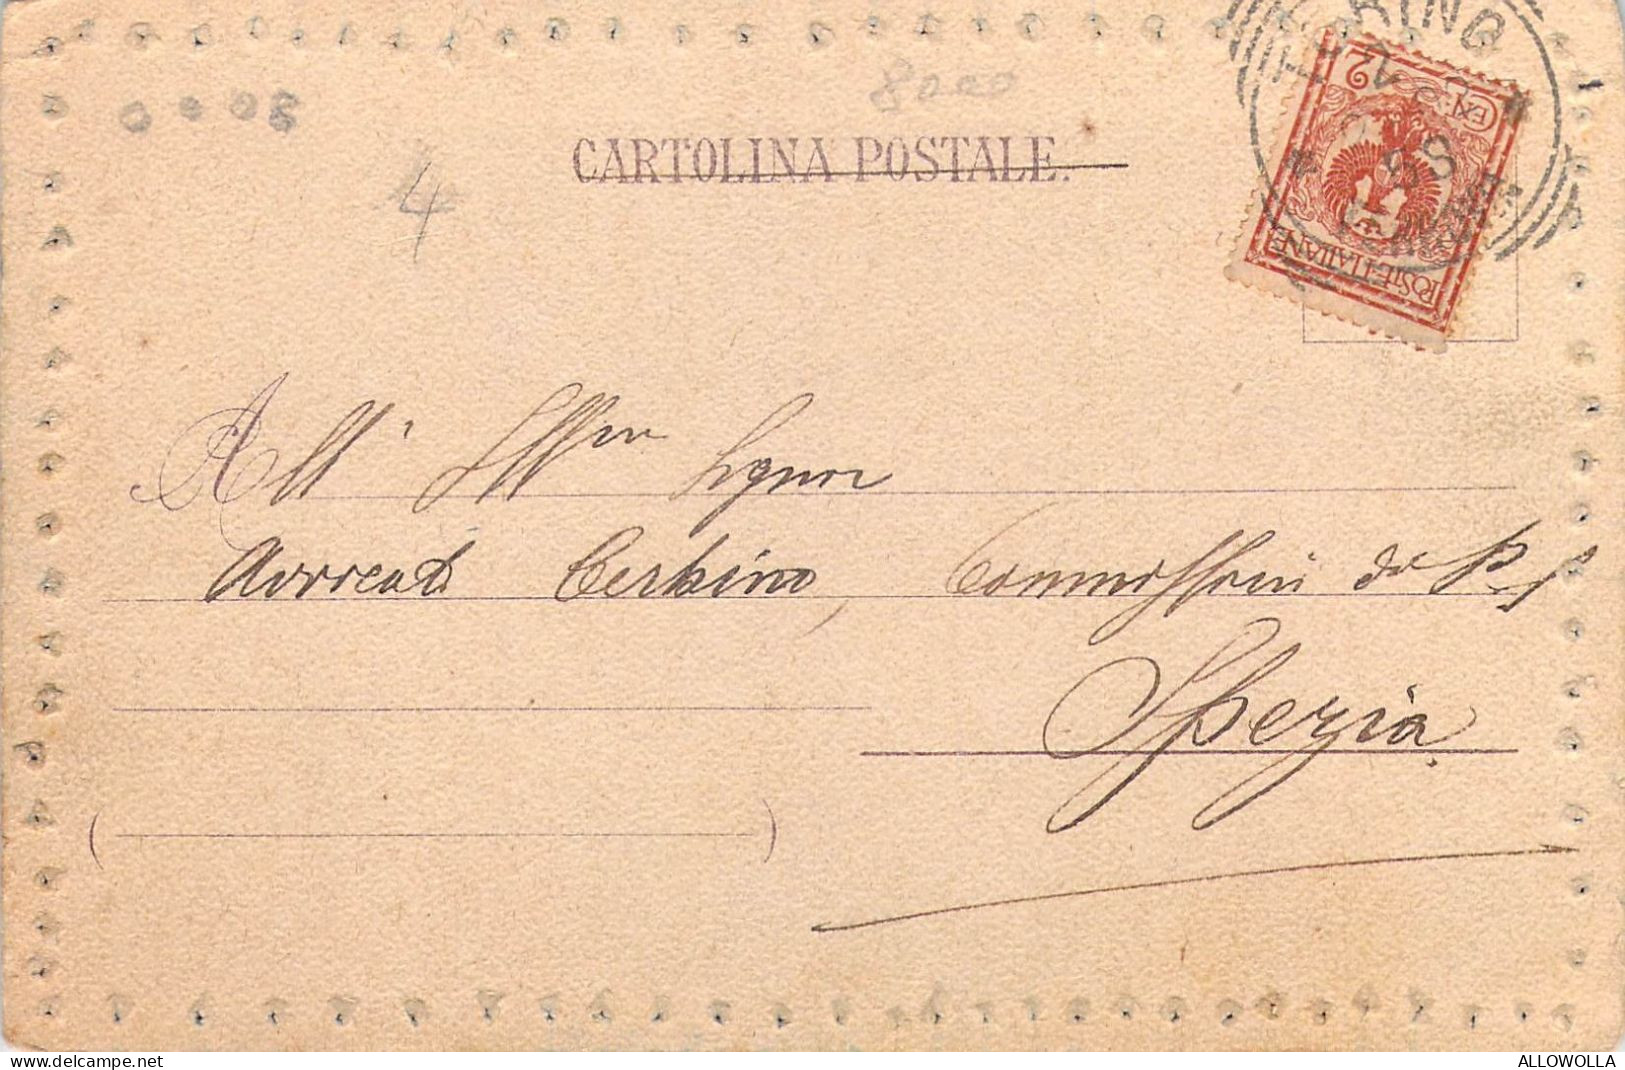 TORINO
8000
8000
CARTOLINA POSTALE.
4
2
CEN.
POSTE ITALIANE
All' Ill Signor
Avvocato Cerbino, Commissario di P. S.
Spezia
ALLOWOLLA
www.delcampe.net